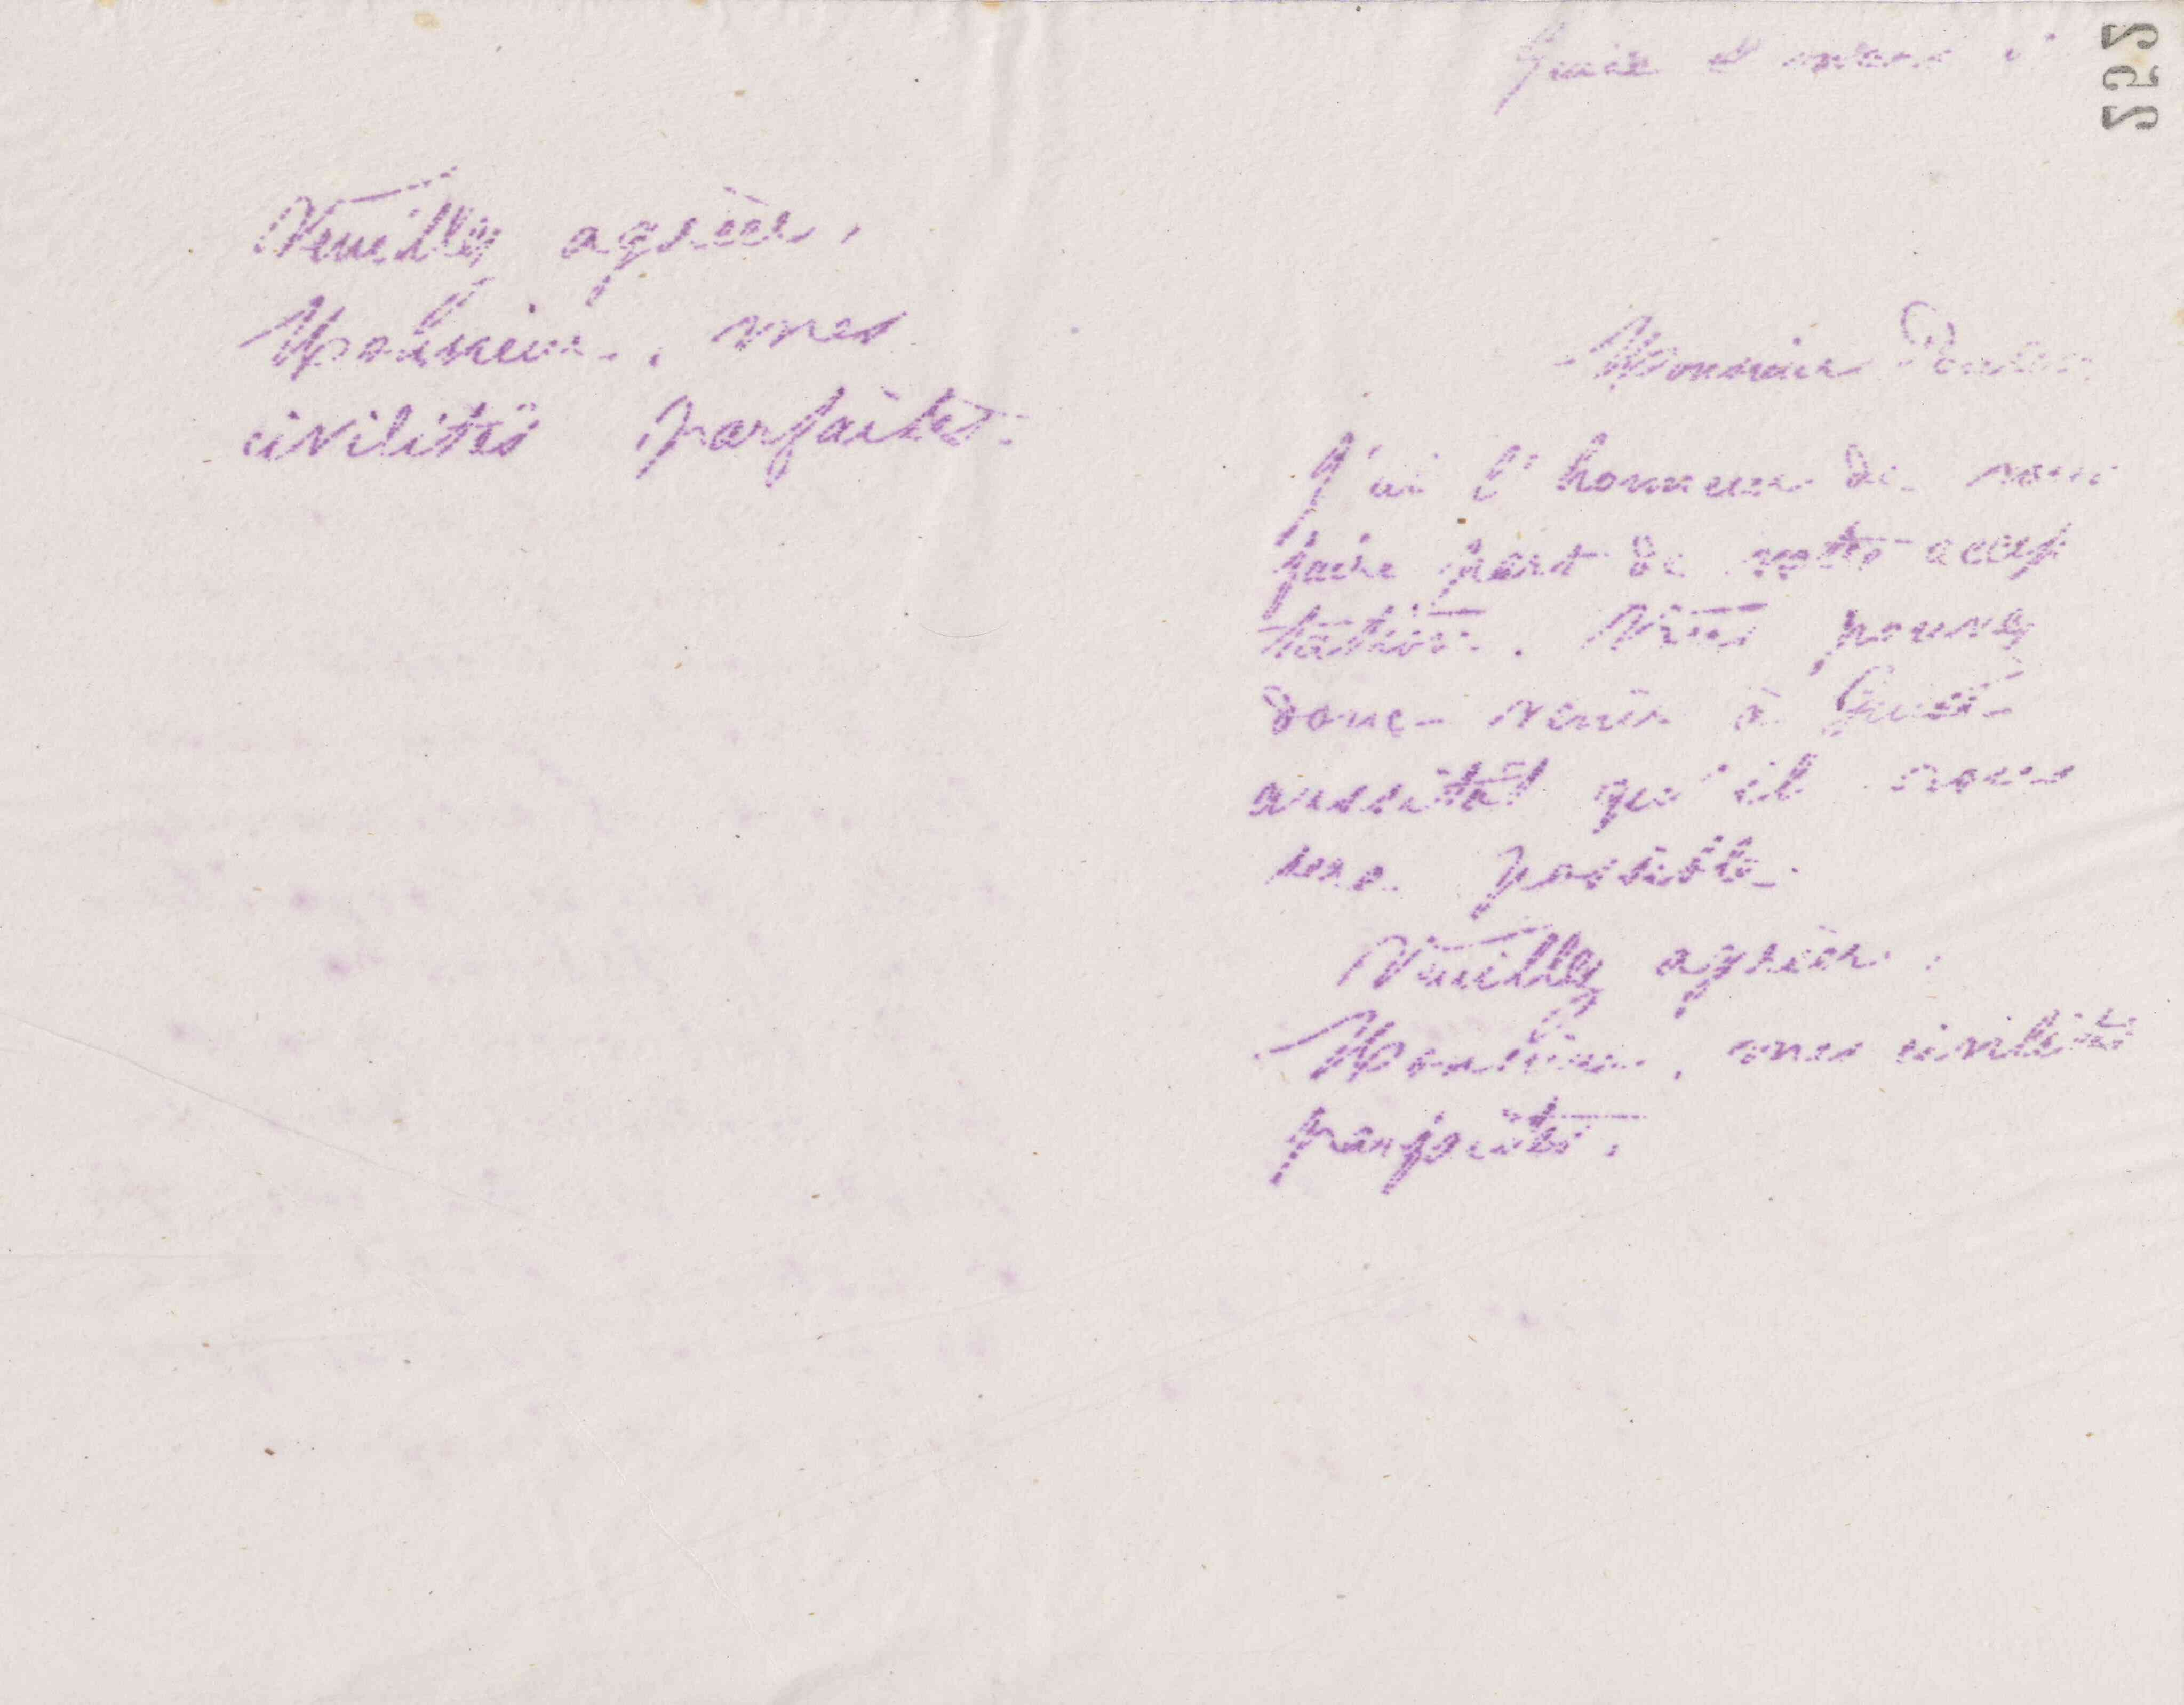 Veuillez agréer,
Monsieur, mes
civilités parfaites.
Guise
Monsieur
J'ai l'honneur de vous
faire part de votre accep
tation. Vous pouvez
donc venir à Guise
aussitôt qu'il vous
sera possible.
Veuillez agréer,
Monsieur, mes civilités
parfaites.
2552